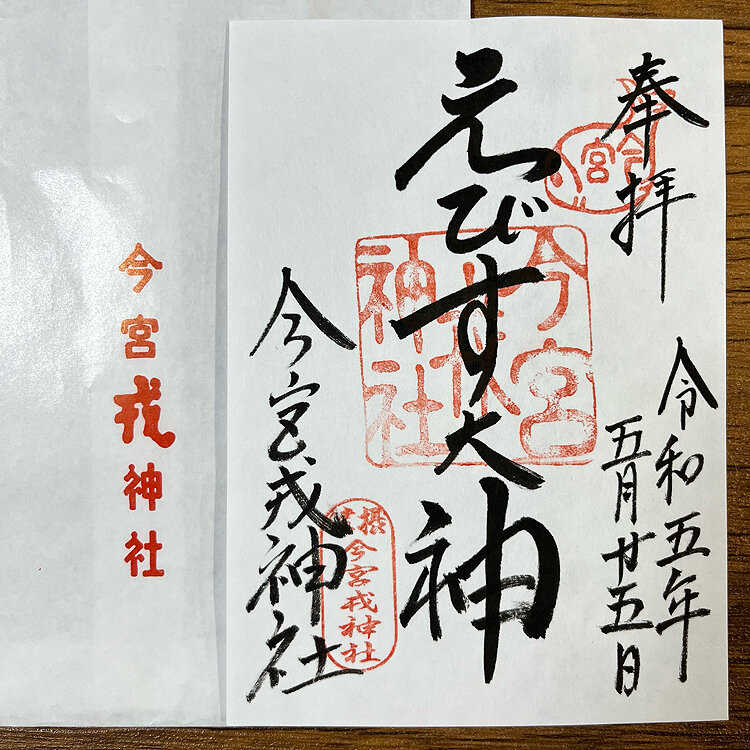 奉拝
令和五年
五月廿五日
えびす大神
今宮戎神社
今宮
今宮
神社
今宮戎神社
今宮戎神社